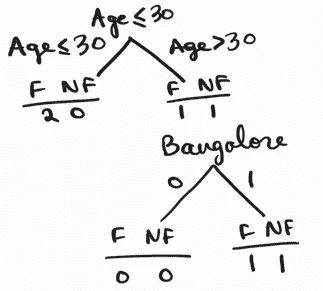 Age≤30
Age≤30 Age>30
F NF F NF
2 0 1 1
Bangalore
0 1
F NF F NF
0 0 1 1